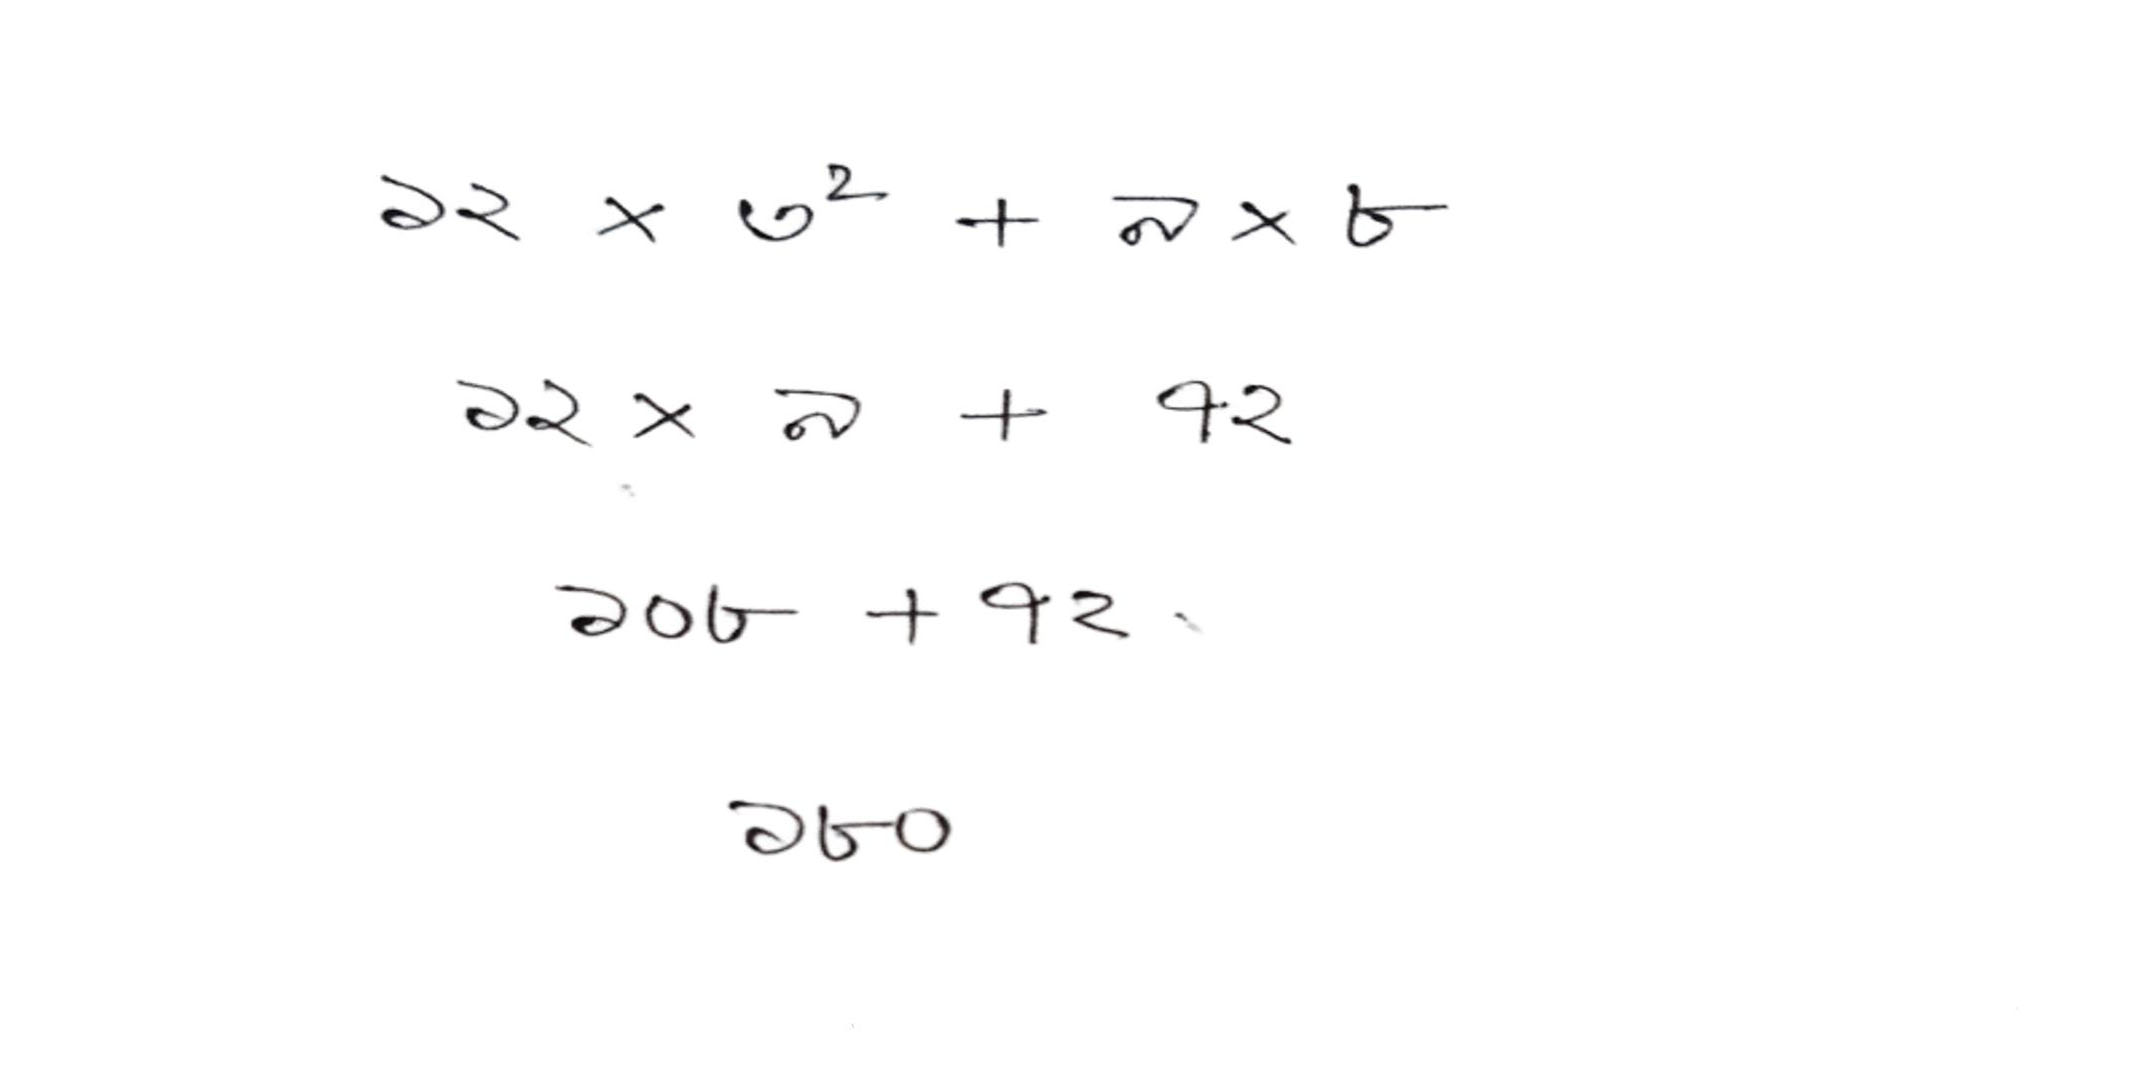 ১২ × ৩² + ৯ × ৮
১২ × ৯ + ৭২
১০৮ + ৭২
১৮০